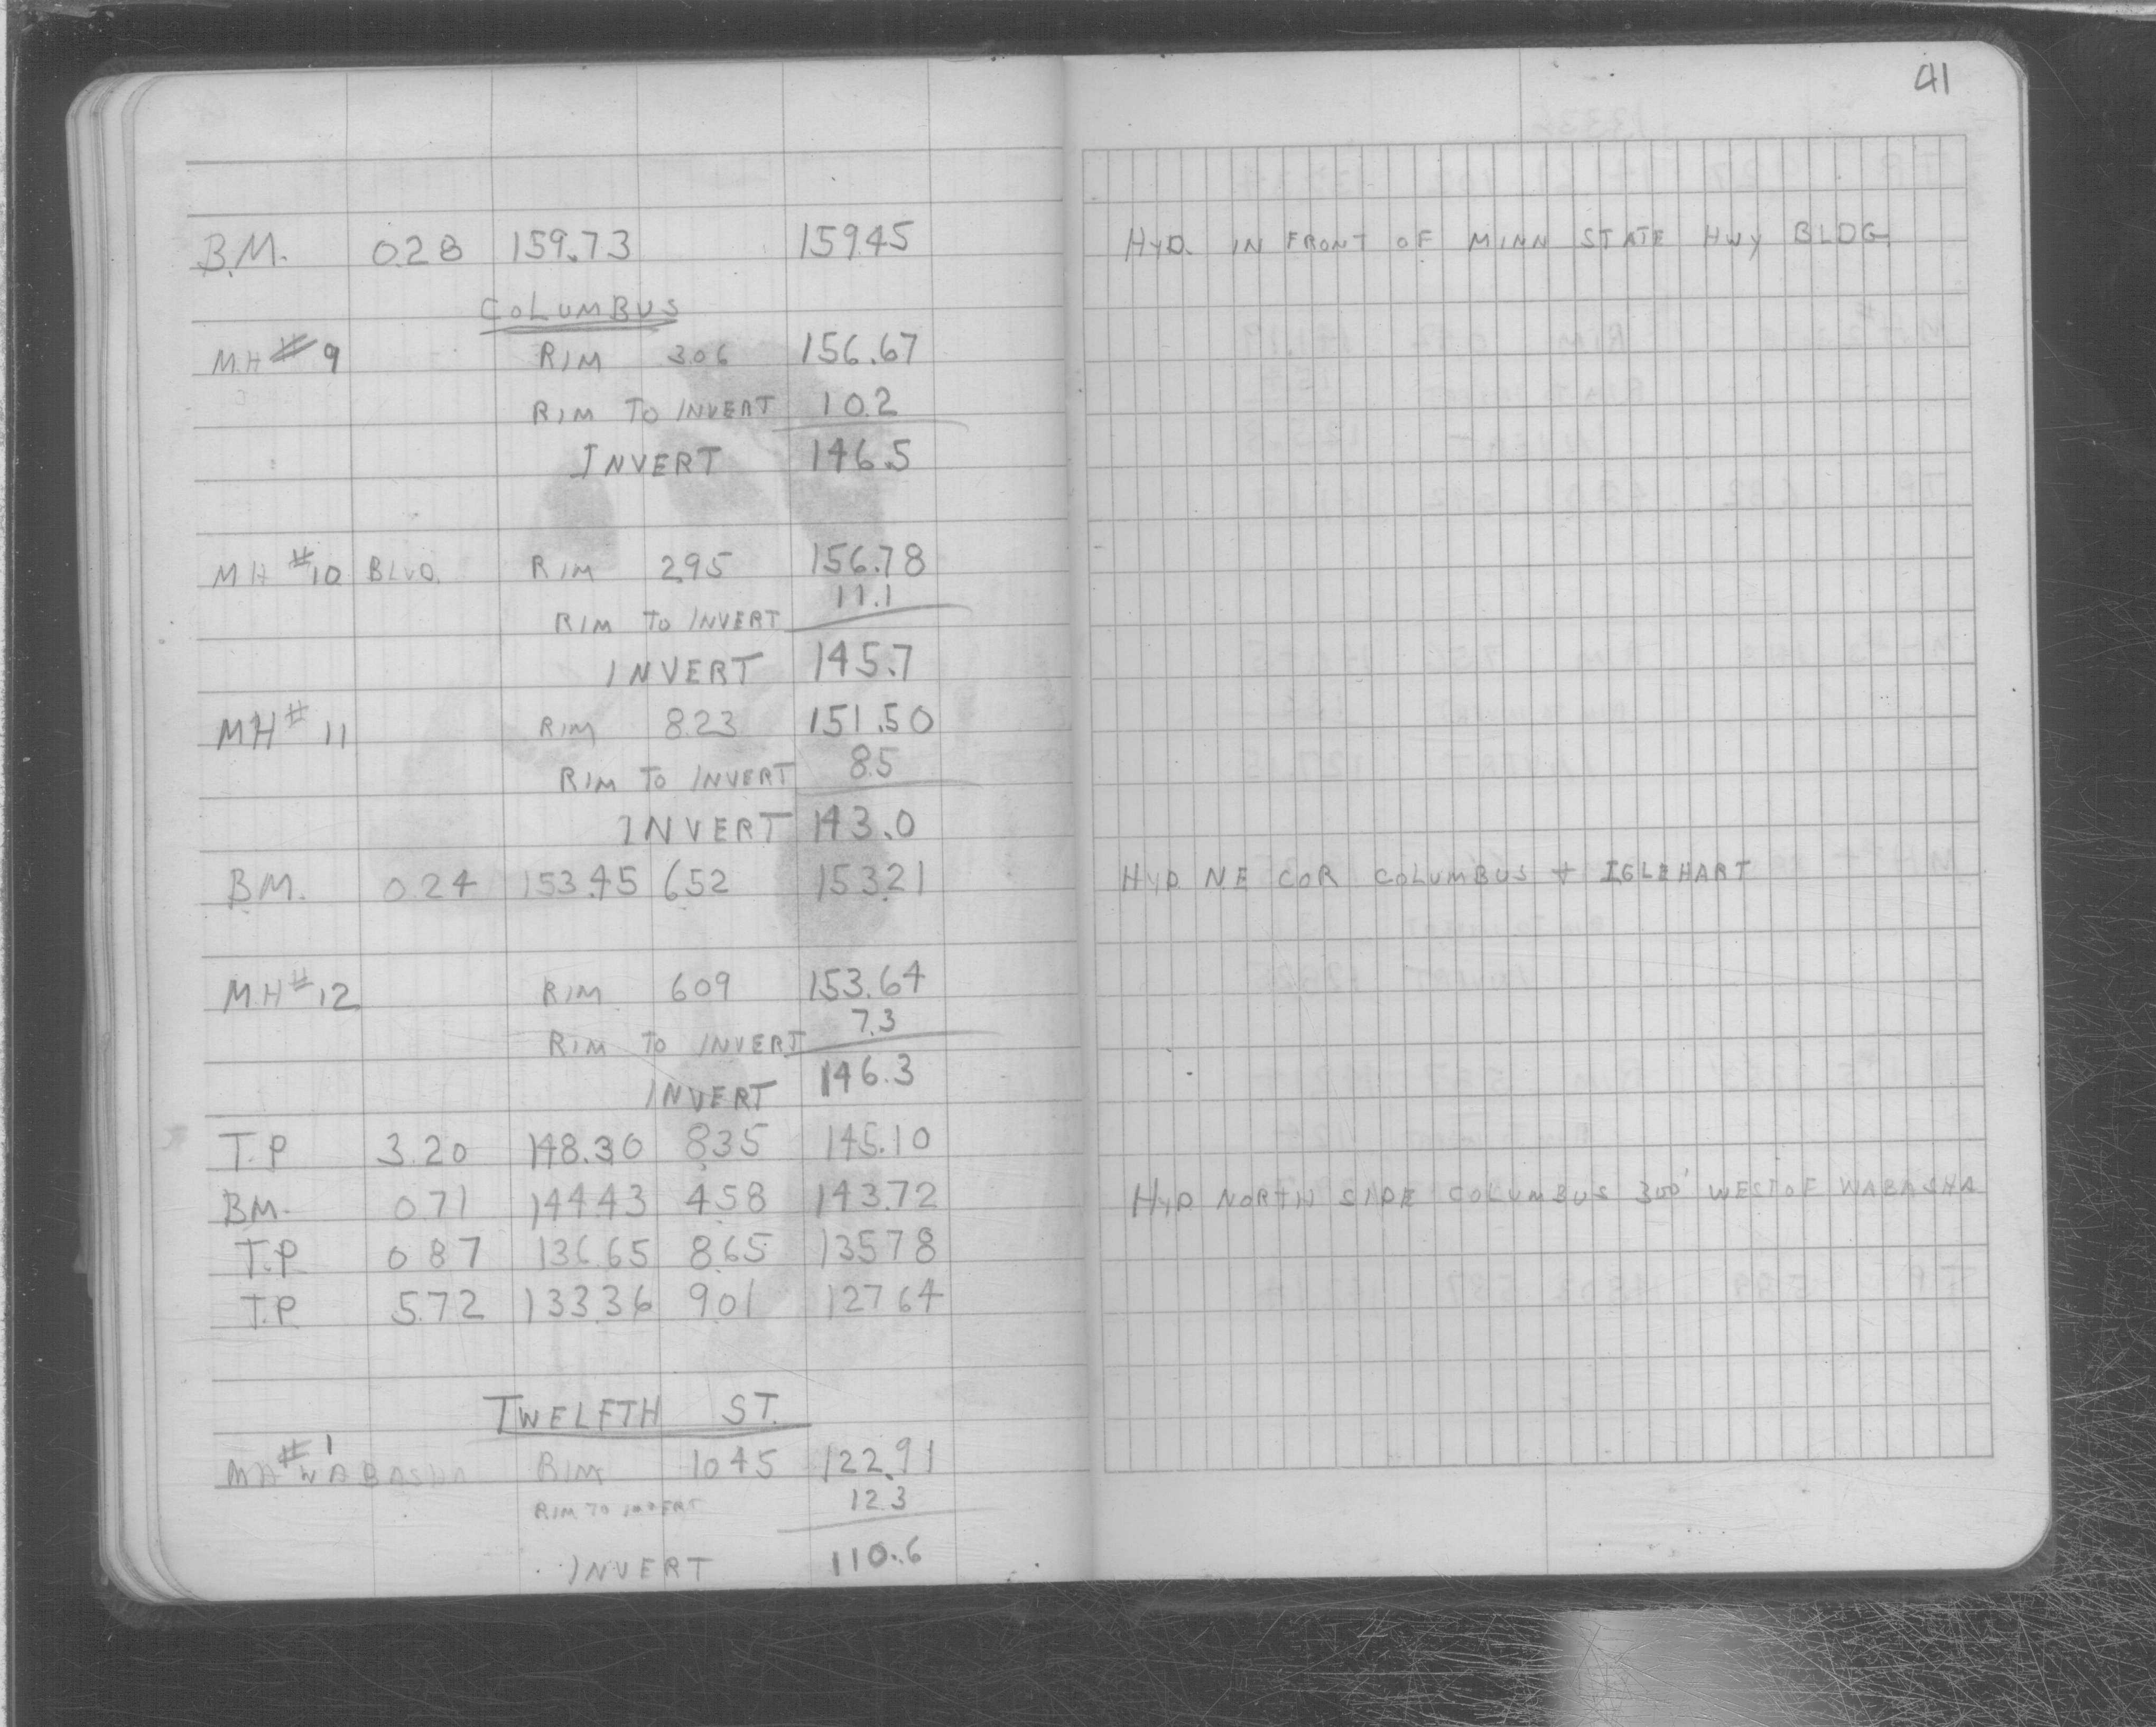 41
B.M. 0.28 159.73 159.45 HYD. IN FRONT OF MINN STATE HWY BLDG
COLUMBUS
M.H # 9 RIM 3.06 156.67
RIM TO INVERT 10.2
INVERT 146.5
MH #10 BLVD. RIM 2.95 156.78
RIM TO INVERT 11.1
INVERT 145.7
MH # 11 RIM 8.23 151.50
RIM TO INVERT 8.5
INVERT 143.0
BM. 0.24 153.45 6.52 153.21 HYD. NE COR COLUMBUS + IGLEHART
M.H # 12 RIM 6.09 153.64
RIM TO INVERT 7.3
INVERT 146.3
T.P 3.20 148.30 8.35 145.10
BM. 0.71 144.43 4.58 143.72 HYD NORTH SIDE COLUMBUS 300' WEST OF WABASHA
T.P. 0.87 136.65 8.65 135.78
T.P. 5.72 133.36 9.01 127.64
TWELFTH ST.
MH #1 WABASHA RIM 10.45 122.91
RIM TO INVERT 12.3
INVERT 110.6